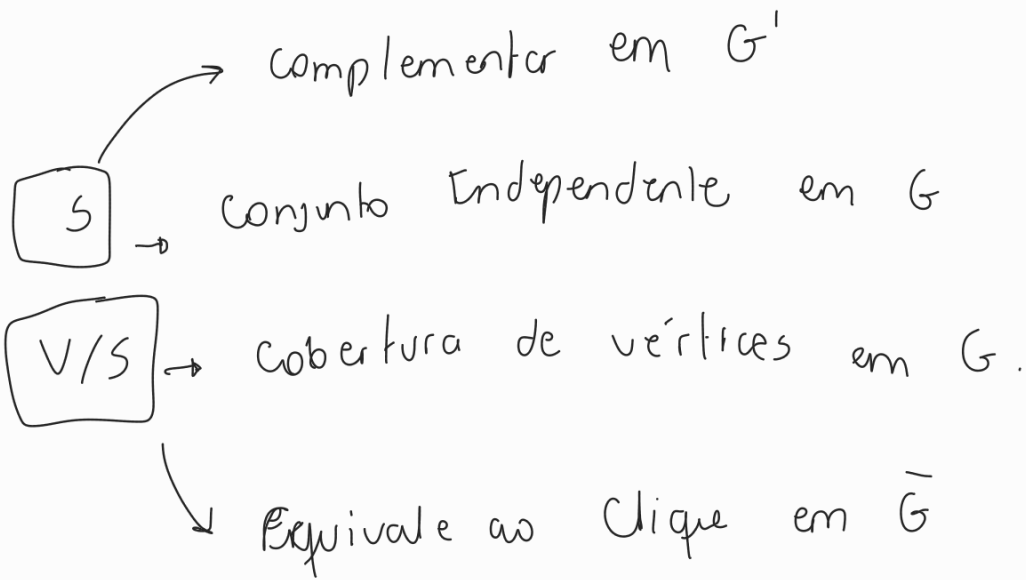 complementar em G'
S → Conjunto Independente em G
V/S → Cobertura de vértices em G.
Equivale ao Clique em G̅